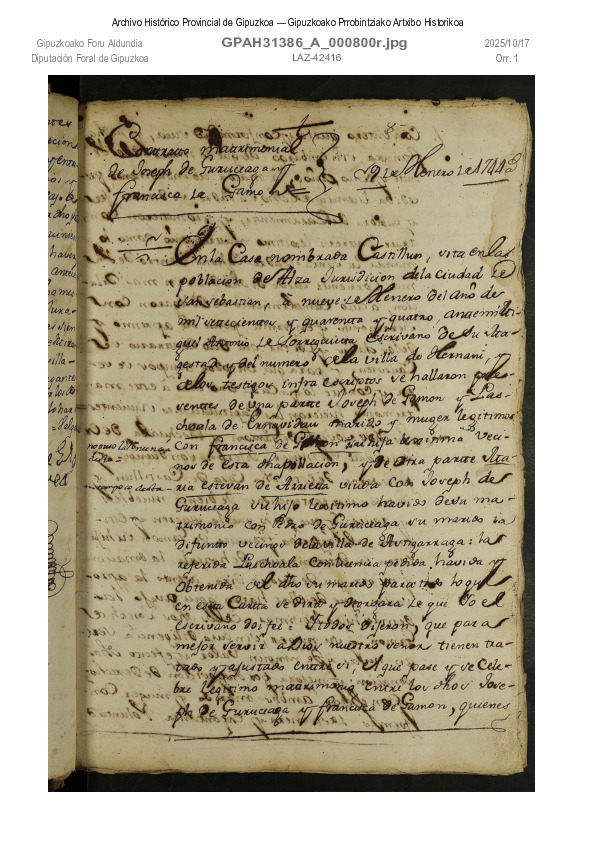 Archivo Histórico Provincial de Gipuzkoa — Gipuzkoako Prrobintziako Artxibo Historikoa
Gipuzkoako Foru Aldundia
Diputación Foral de Gipuzkoa
GPAH31386_A_000800r.jpg
LAZ-42416
2025/10/17
Orr. 1
Contrato matrimonial
de Joseph de Guruceaga y
francisca de Gamon
9 de Henero de 1744
En la Casa nombrada Castillun, sita en las
poblacion de Alza Jurisdicion de la ciudad de
San sebastian, a nueve de Henero del año de
mil setecientos y quarenta y quatro, ante mi Mi-
guel Antonio de Sorreguieta escrivano de su Ma-
gestad y del numero de la villa de Hernani, y
de los testigos infra escriptos se hallaron pre-
sentes de una parte Joseph de Gamon y Pas-
choala de marido y muger legitimos
Con francisca de Gamon su hija legitima Veci-
nos de esta dha poblacion, y de otra parte Ma-
ria estevan de Arrieta viuda con Joseph de
Guruceaga su hijo legitimo havido de su ma-
trimonio con Pedro de Guruceaga su marido ia
difunto vecinos de la villa de Astigarraga: la
referida Paschoala Con licencia pedida, havida y
obtenida del dho su marido para todo lo que
en esta Carta se dira y otorgara de que Yo el
escrivano doi fee = Y todos dijeron, que para
mejor servir a Dios nuestro señor tienen tra-
tado y ajustado entre si, el que pase y se Cele-
bre legitimo matrimonio entre los dhos Jose-
ph de Guruceaga y francisca de Gamon, quienes